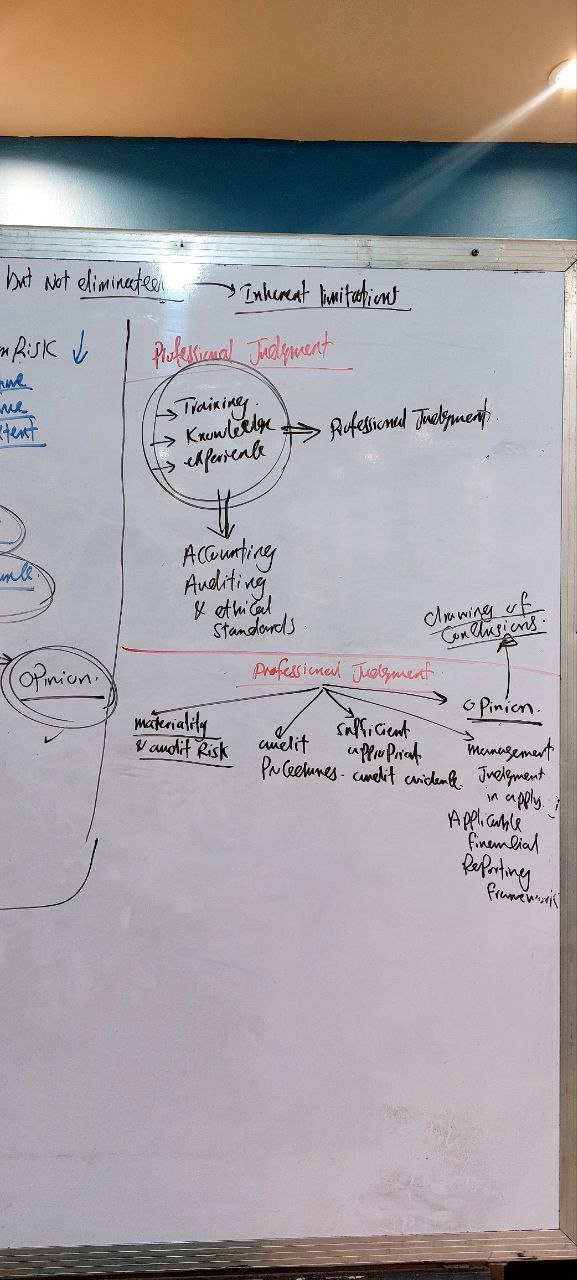 but not eliminated → Inherent limitations
Risk ↓
Opinion.
Professional Judgment
→ Training.
→ Knowledge
→ experience
⇒ Professional Judgment.
Accounting
Auditing
& ethical
standards.
Professional Judgment
materiality
& audit Risk
audit
Procedures.
sufficient
appropriat
audit evidence.
drawing of
Conclusions.
opinion.
management
Judgment
in apply.
Applicable
financial
Reporting